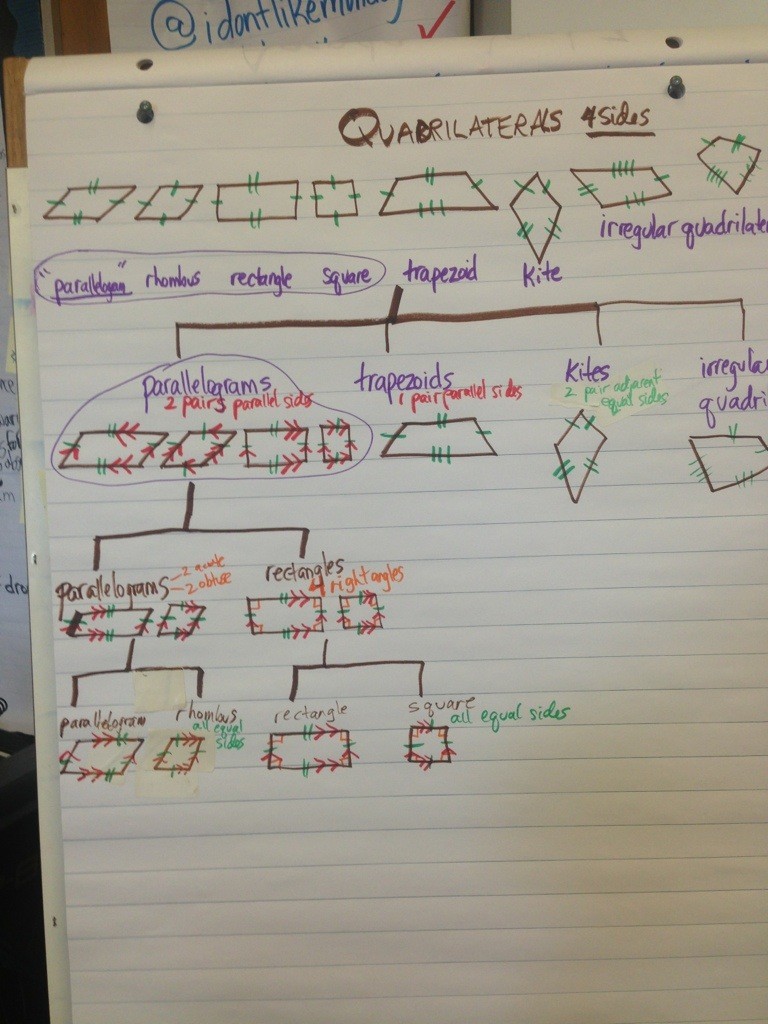 @idontlikemunday
QUADRILATERALS 4 sides
irregular quadrilate
"parallelogram" rhombus rectangle square trapezoid kite
parallelograms trapezoids kites irregula
2 pairs parallel sides 1 pair parallel sides 2 pair adjacent quadri
equal sides
parallelograms - 2 acute rectangles
- 2 obtuse 4 right angles
parallelogram rhombus rectangle square
all equal all equal sides
sides